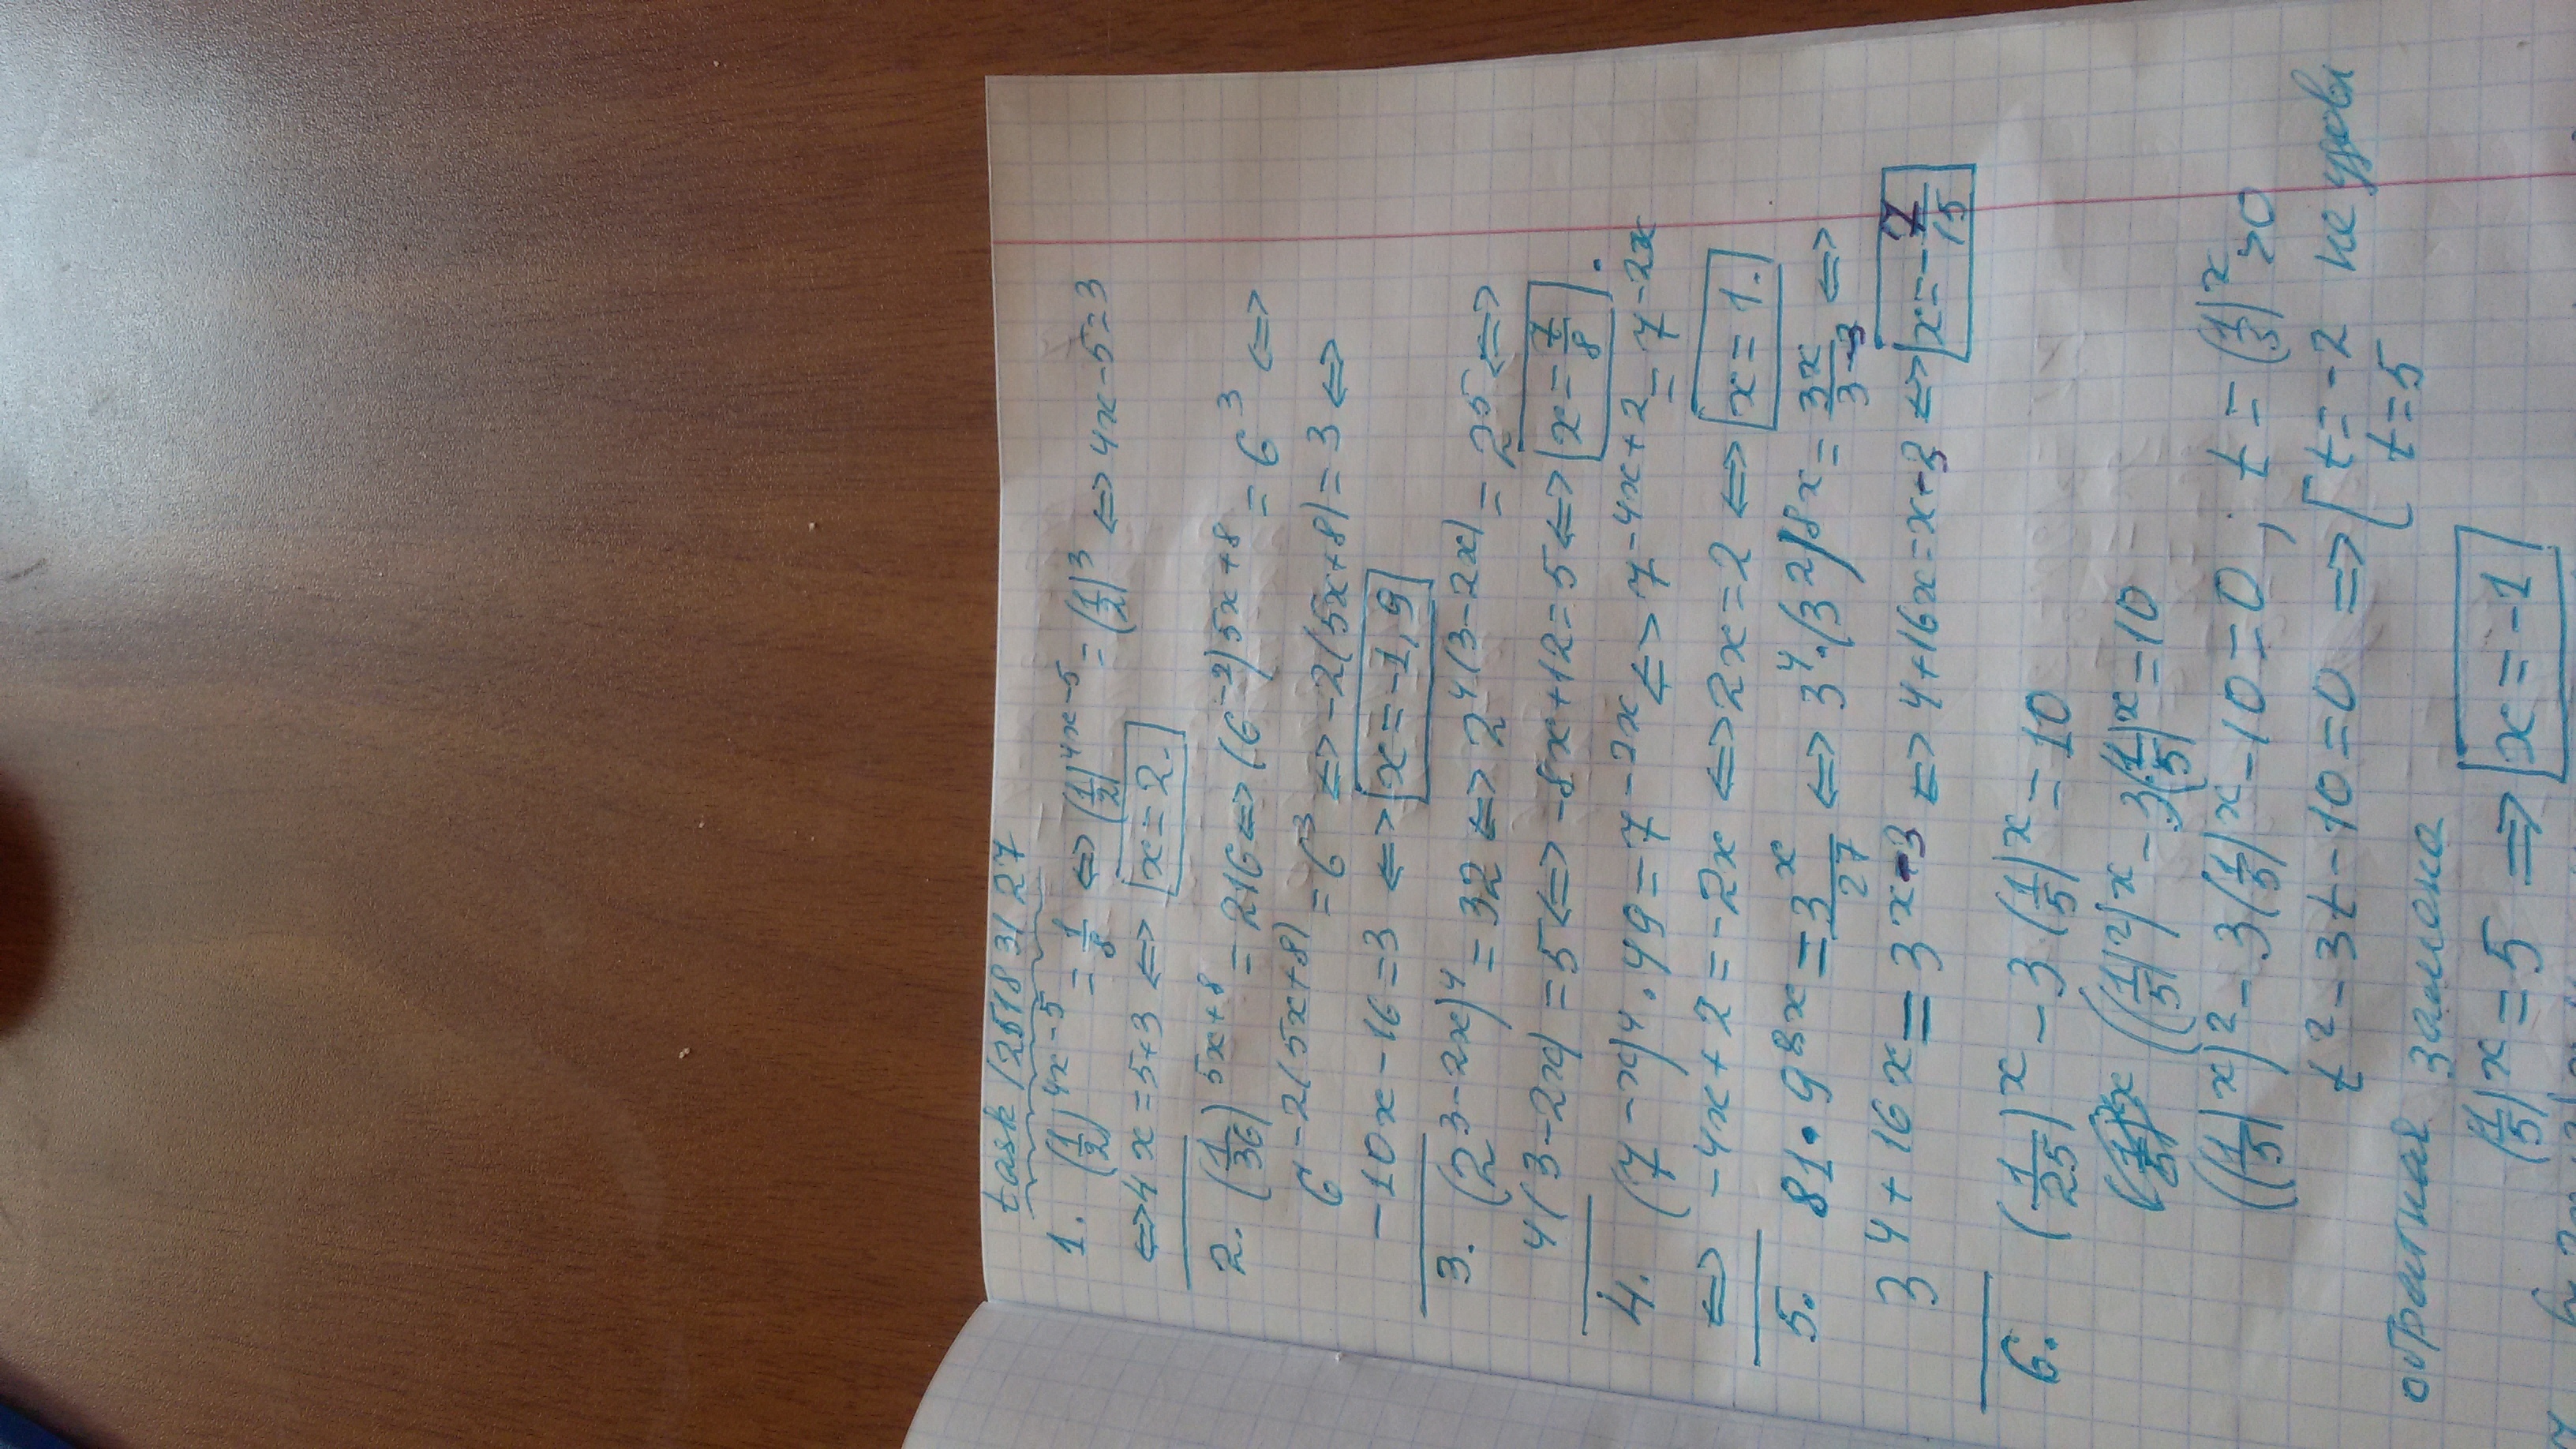 task /25183127
1. (1/2)^(4x-5) = 1/8 ⇔ (1/2)^(4x-5) = (1/2)^3 ⇔ 4x-5=3
⇔ 4x=5+3 ⇔ x=2.
2. (1/36)^(5x+8) = 216 ⇔ (6^-2)^(5x+8) = 6^3 ⇔
6^(-2(5x+8)) = 6^3 ⇔ -2(5x+8)=3 ⇔
-10x-16=3 ⇔ x=-1,9
3. (2^(3-2x))^4 = 32 ⇔ 2^(4(3-2x)) = 2^5 ⇔
4(3-2x)=5 ⇔ -8x+12=5 ⇔ x=7/8.
4. (7^(-x))^4 · 49 = 7^(-2x) ⇔ 7^(-4x+2) = 7^(-2x)
⇔ -4x+2=-2x ⇔ 2x=2 ⇔ x=1.
5. 81·9^(8x) = 3^x/27 ⇔ 3^4·(3^2)^(8x) = 3^x/3^3 ⇔
3^(4+16x) = 3^(x-3) ⇔ 4+16x=x-3 ⇔ x=-7/15
6. (1/25)^x - 3·(1/5)^x = 10
((1/5)^2)^x - 3(1/5)^x = 10
((1/5)^x)^2 - 3(1/5)^x - 10 = 0; t = (1/3)^x > 0
t^2-3t-10=0 ⇒ [ t=-2 не удовл
t=5
обратная замена
(1/5)^x = 5 ⇒ x=-1